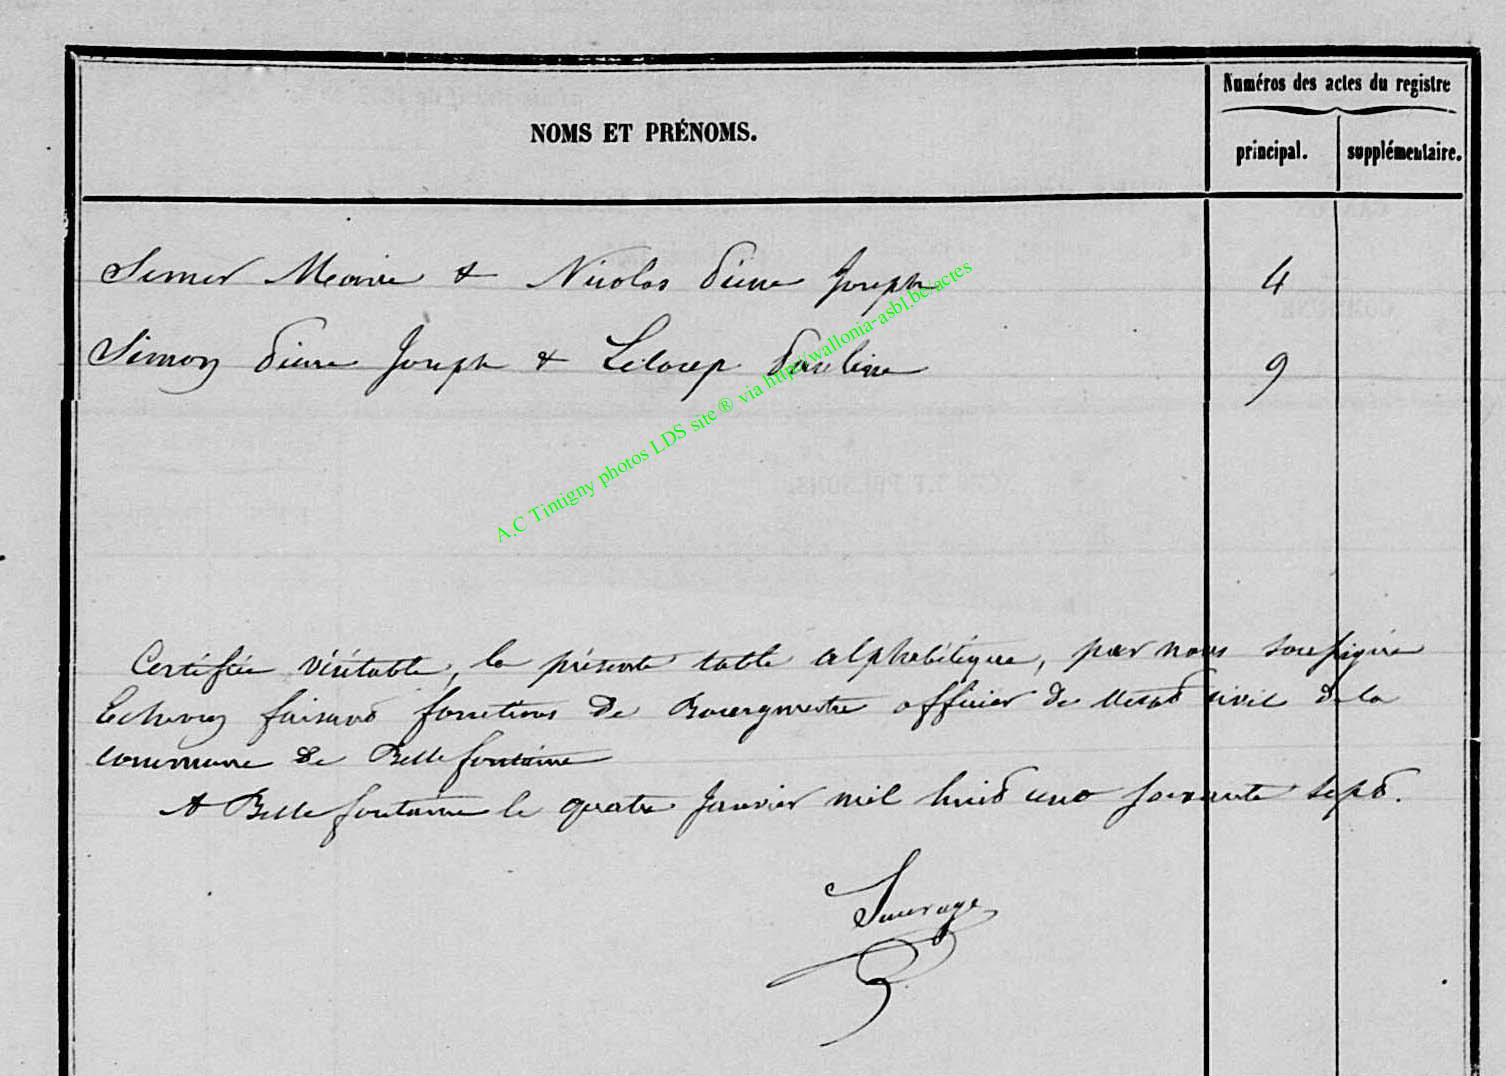 Numéros des actes du registre
NOMS ET PRÉNOMS.
principal. supplémentaire.
Simer Marie & Nicolas Pierre Joseph 4
Simon Pierre Joseph & Pauline 9
A.C Tintigny photos LDS site ® via http://wallonia-asbl.be/actes
Certifiée véritable, la présente table alphabétique, par nous soussigné
Echevin faisant fonctions de Bourgmestre officier de l'état civil de la
commune de Bellefontaine
A Bellefontaine le quatre Janvier mil huit cent soixante sept.
Sauvage